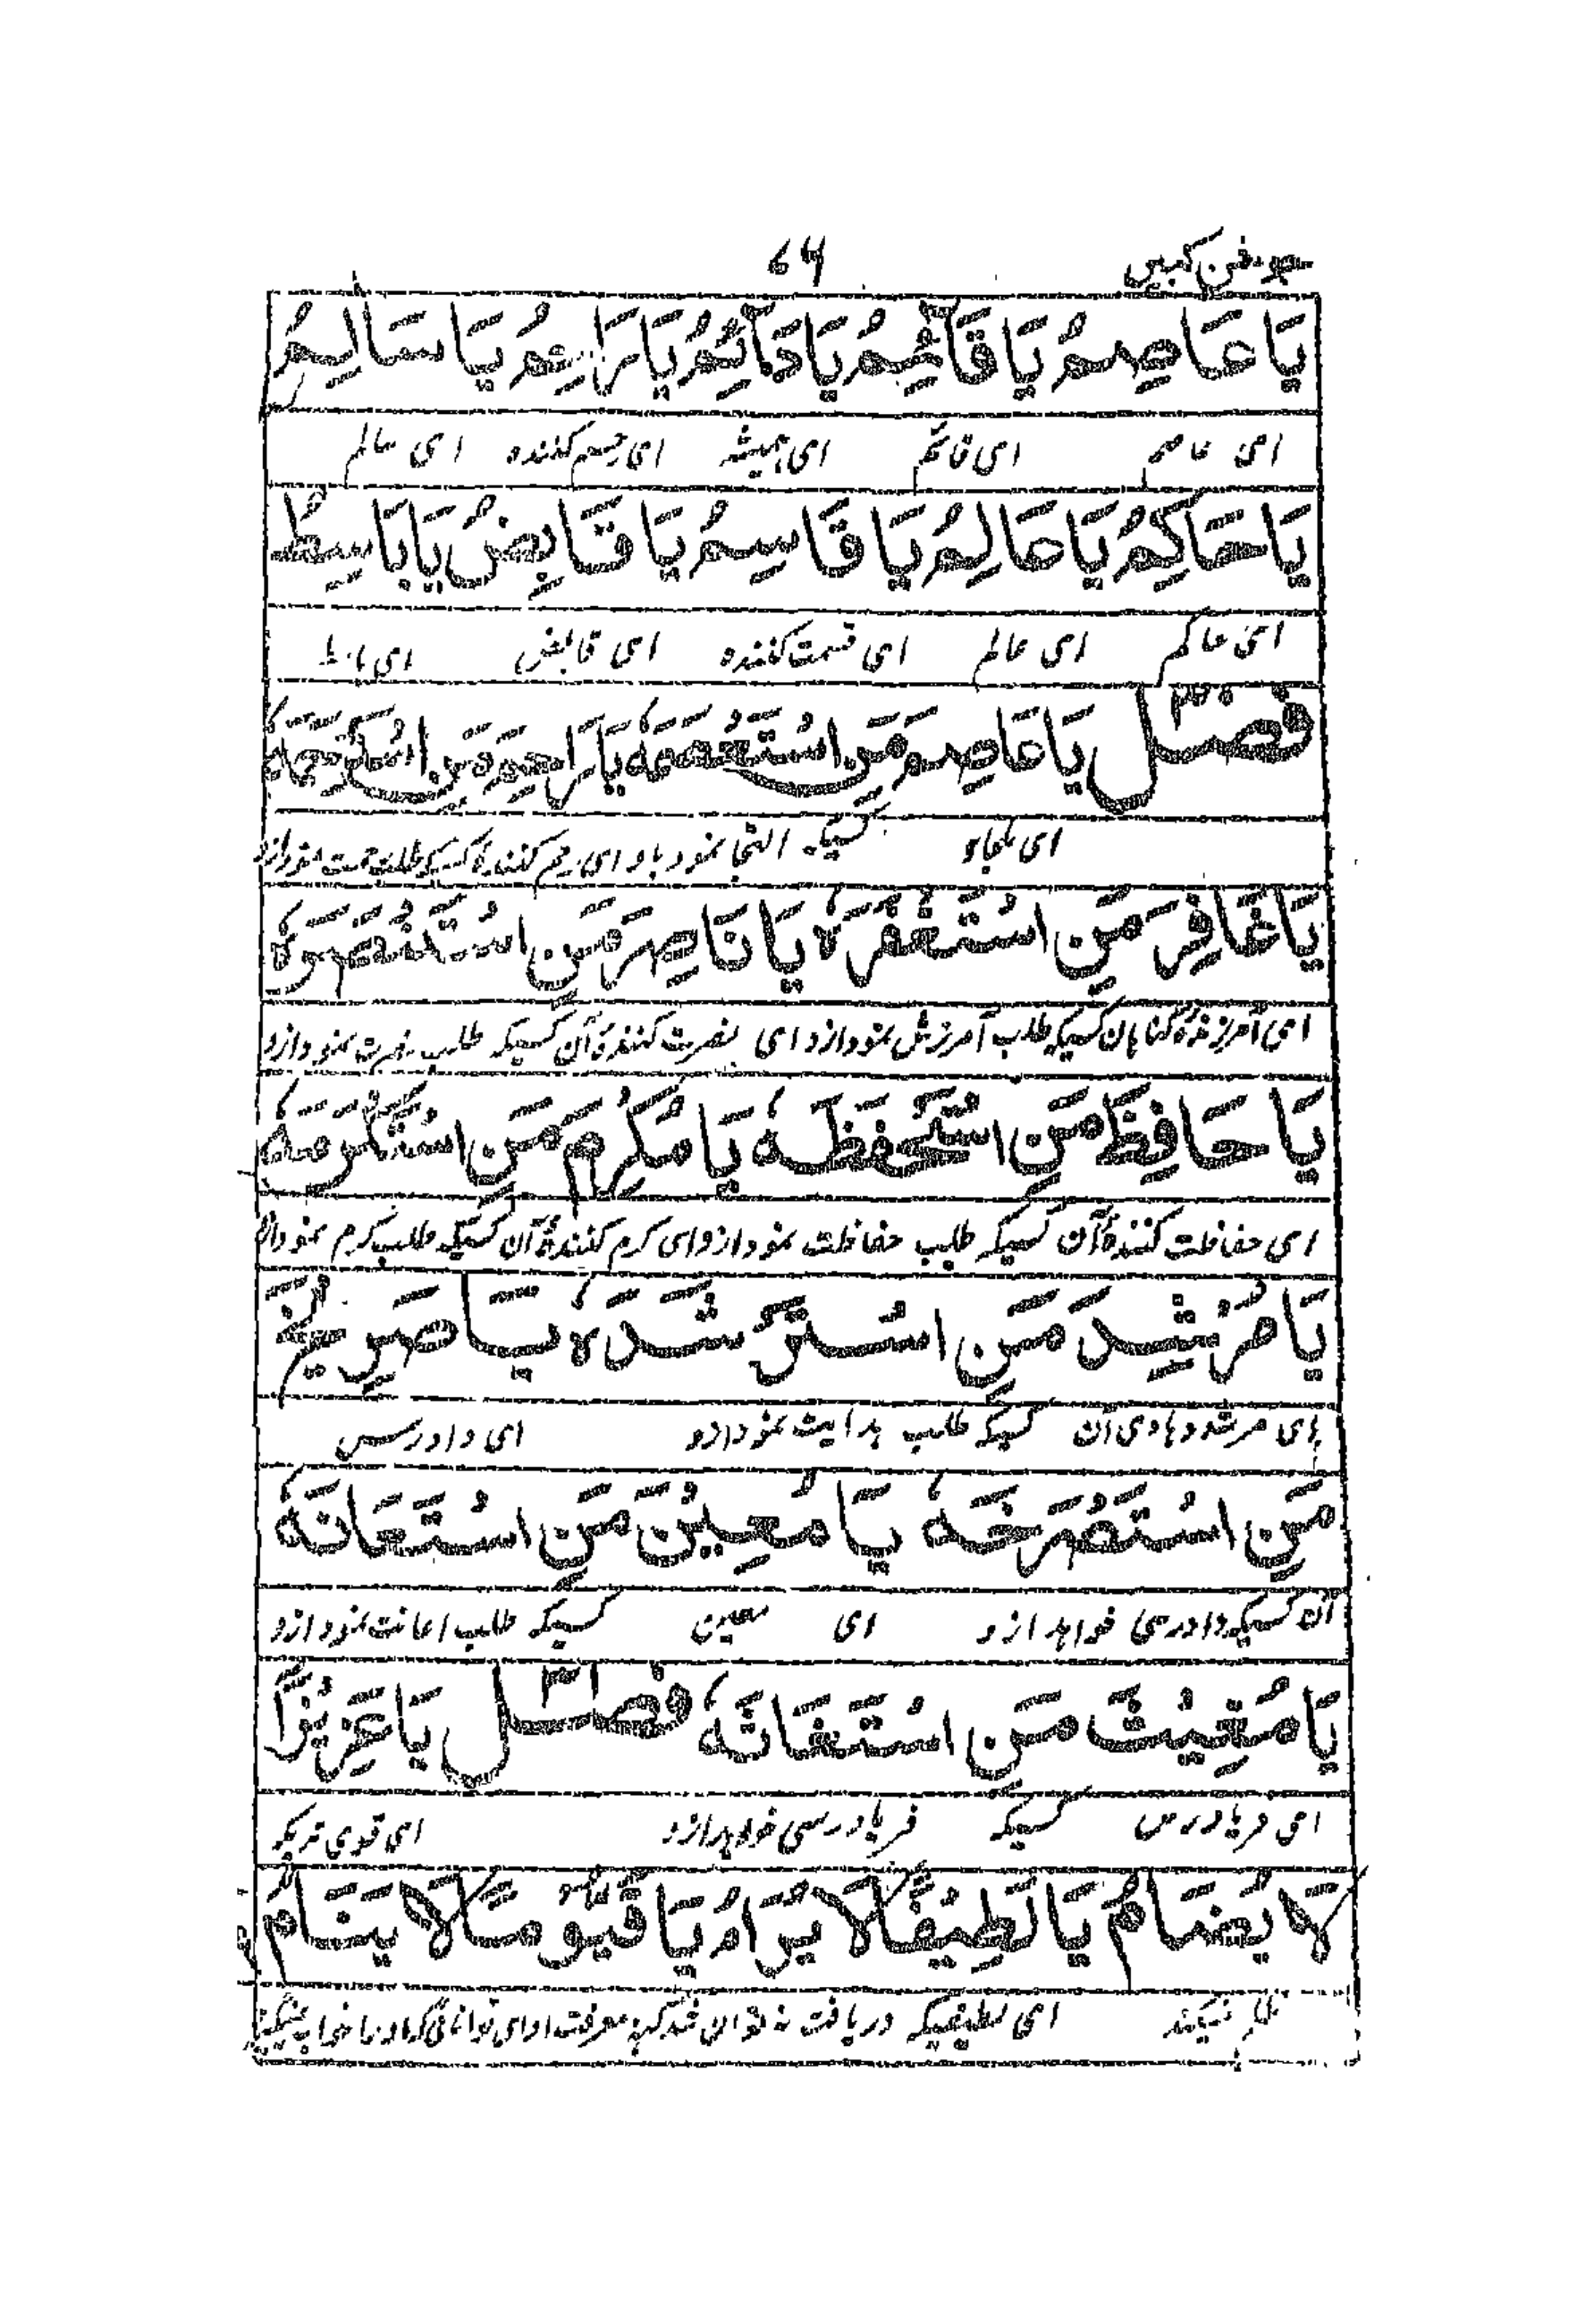 جوشن کبیر ٦٧
يَا عَاصِمُ يَا قَائِمُ يَا دَائِمُ يَا رَاحِمُ يَا سَالِمُ
ای عاصم ای قائم ای همیشه ای رحم کننده ای سالم
يَا حَاكِمُ يَا عَالِمُ يَا قَاسِمُ يَا قَابِضُ يَا بَاسِطُ
ای حاکم ای عالم ای قسمت کننده ای قابض ای باسط
فصل يَا عَاصِمَ مَنِ اسْتَعْصَمَهُ يَا رَاحِمَ مَنِ اسْتَرْحَمَهُ
ای ملجاء کسیکه التجا نمود باو ای رحم کننده کسیکه طلب رحمت نمود ازو
يَا غَافِرَ مَنِ اسْتَغْفَرَهُ يَا نَاصِرَ مَنِ اسْتَنْصَرَهُ
ای آمرزندهٔ گناهان کسیکه طلب آمرزش نمود ازو ای نصرت کنندهٔ آن کسیکه طلب نصرت نمود ازو
يَا حَافِظَ مَنِ اسْتَحْفَظَهُ يَا مُكْرِمَ مَنِ اسْتَكْرَمَهُ
ای حفاظت کنندهٔ آن کسیکه طلب حفاظت نمود ازو ای کرم کنندهٔ آن کسیکه طلب کرم نمود ازو
يَا مُرْشِدَ مَنِ اسْتَرْشَدَهُ يَا صَرِيخَ
ای مرشد و هادی آن کسیکه طلب هدایت نمود ازو ای دادرس
مَنِ اسْتَصْرَخَهُ يَا مُعِينَ مَنِ اسْتَعَانَهُ
آن کسیکه دادرسی خواهد ازو ای معین کسیکه طلب اعانت نمود ازو
يَا مُغِيثَ مَنِ اسْتَغَاثَهُ فصل يَا عَزِيزًا
ای فریادرس کسیکه فریادرسی خواهد ازو ای قوی تریکه
لَا يُضَامُ يَا لَطِيفًا لَا يُرَامُ يَا قَيُّومًا لَا يَنَامُ
ظلم نمیکند ای لطیفیکه دریافت نه توان شد کنه معرفت او ای توانائی که او را خواب نمیگیرد